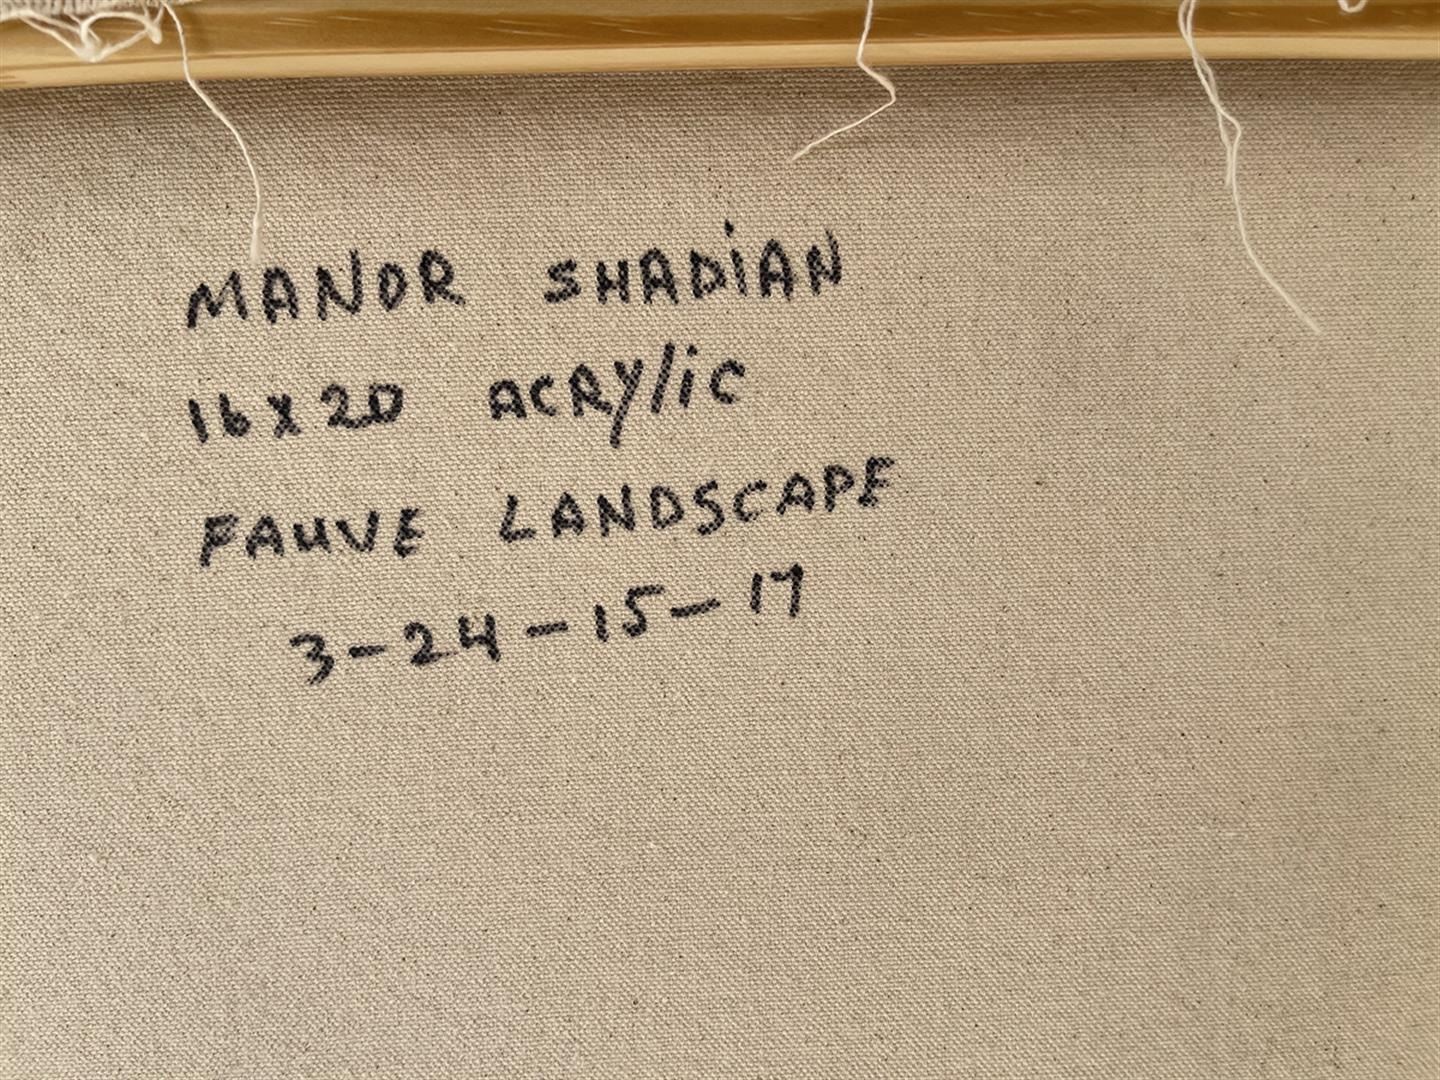 MANOR SHADiAN
16x20 ACRYliC
FAUVE LANDSCAPE
3-24-15-17